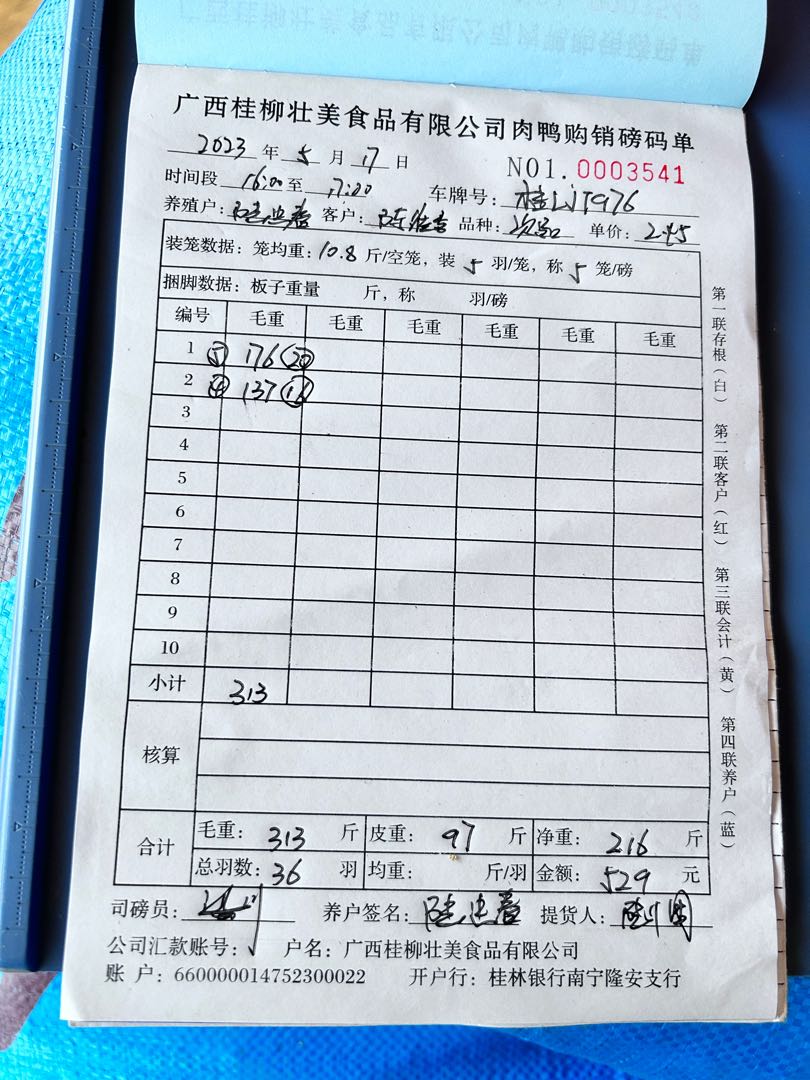 广西桂柳壮美食品有限公司肉鸭购销磅码单
2023 年 5 月 17 日
NO1.0003541
时间段 16:00 至 17:00 车牌号：桂
养殖户： 客户： 品种： 单价：2.45
装笼数据：笼均重：10.8 斤/空笼，装 5 羽/笼，称 5 笼/磅
捆脚数据：板子重量 斤，称 羽/磅
编号 毛重 毛重 毛重 毛重 毛重 毛重
1 ⑤ 176 ⑳
2 ④ 137 ⑯
3
4
5
6
7
8
9
10
小计 313
核算
合计 毛重：313 斤 皮重：97 斤 净重：216 斤
总羽数：36 羽 均重： 斤/羽 金额：529 元
司磅员： 养户签名： 提货人：
公司汇款账号： 户名：广西桂柳壮美食品有限公司
账 户：660000014752300022 开户行：桂林银行南宁隆安支行
第一联存根（白） 第二联客户（红） 第三联会计（黄） 第四联养户（蓝）